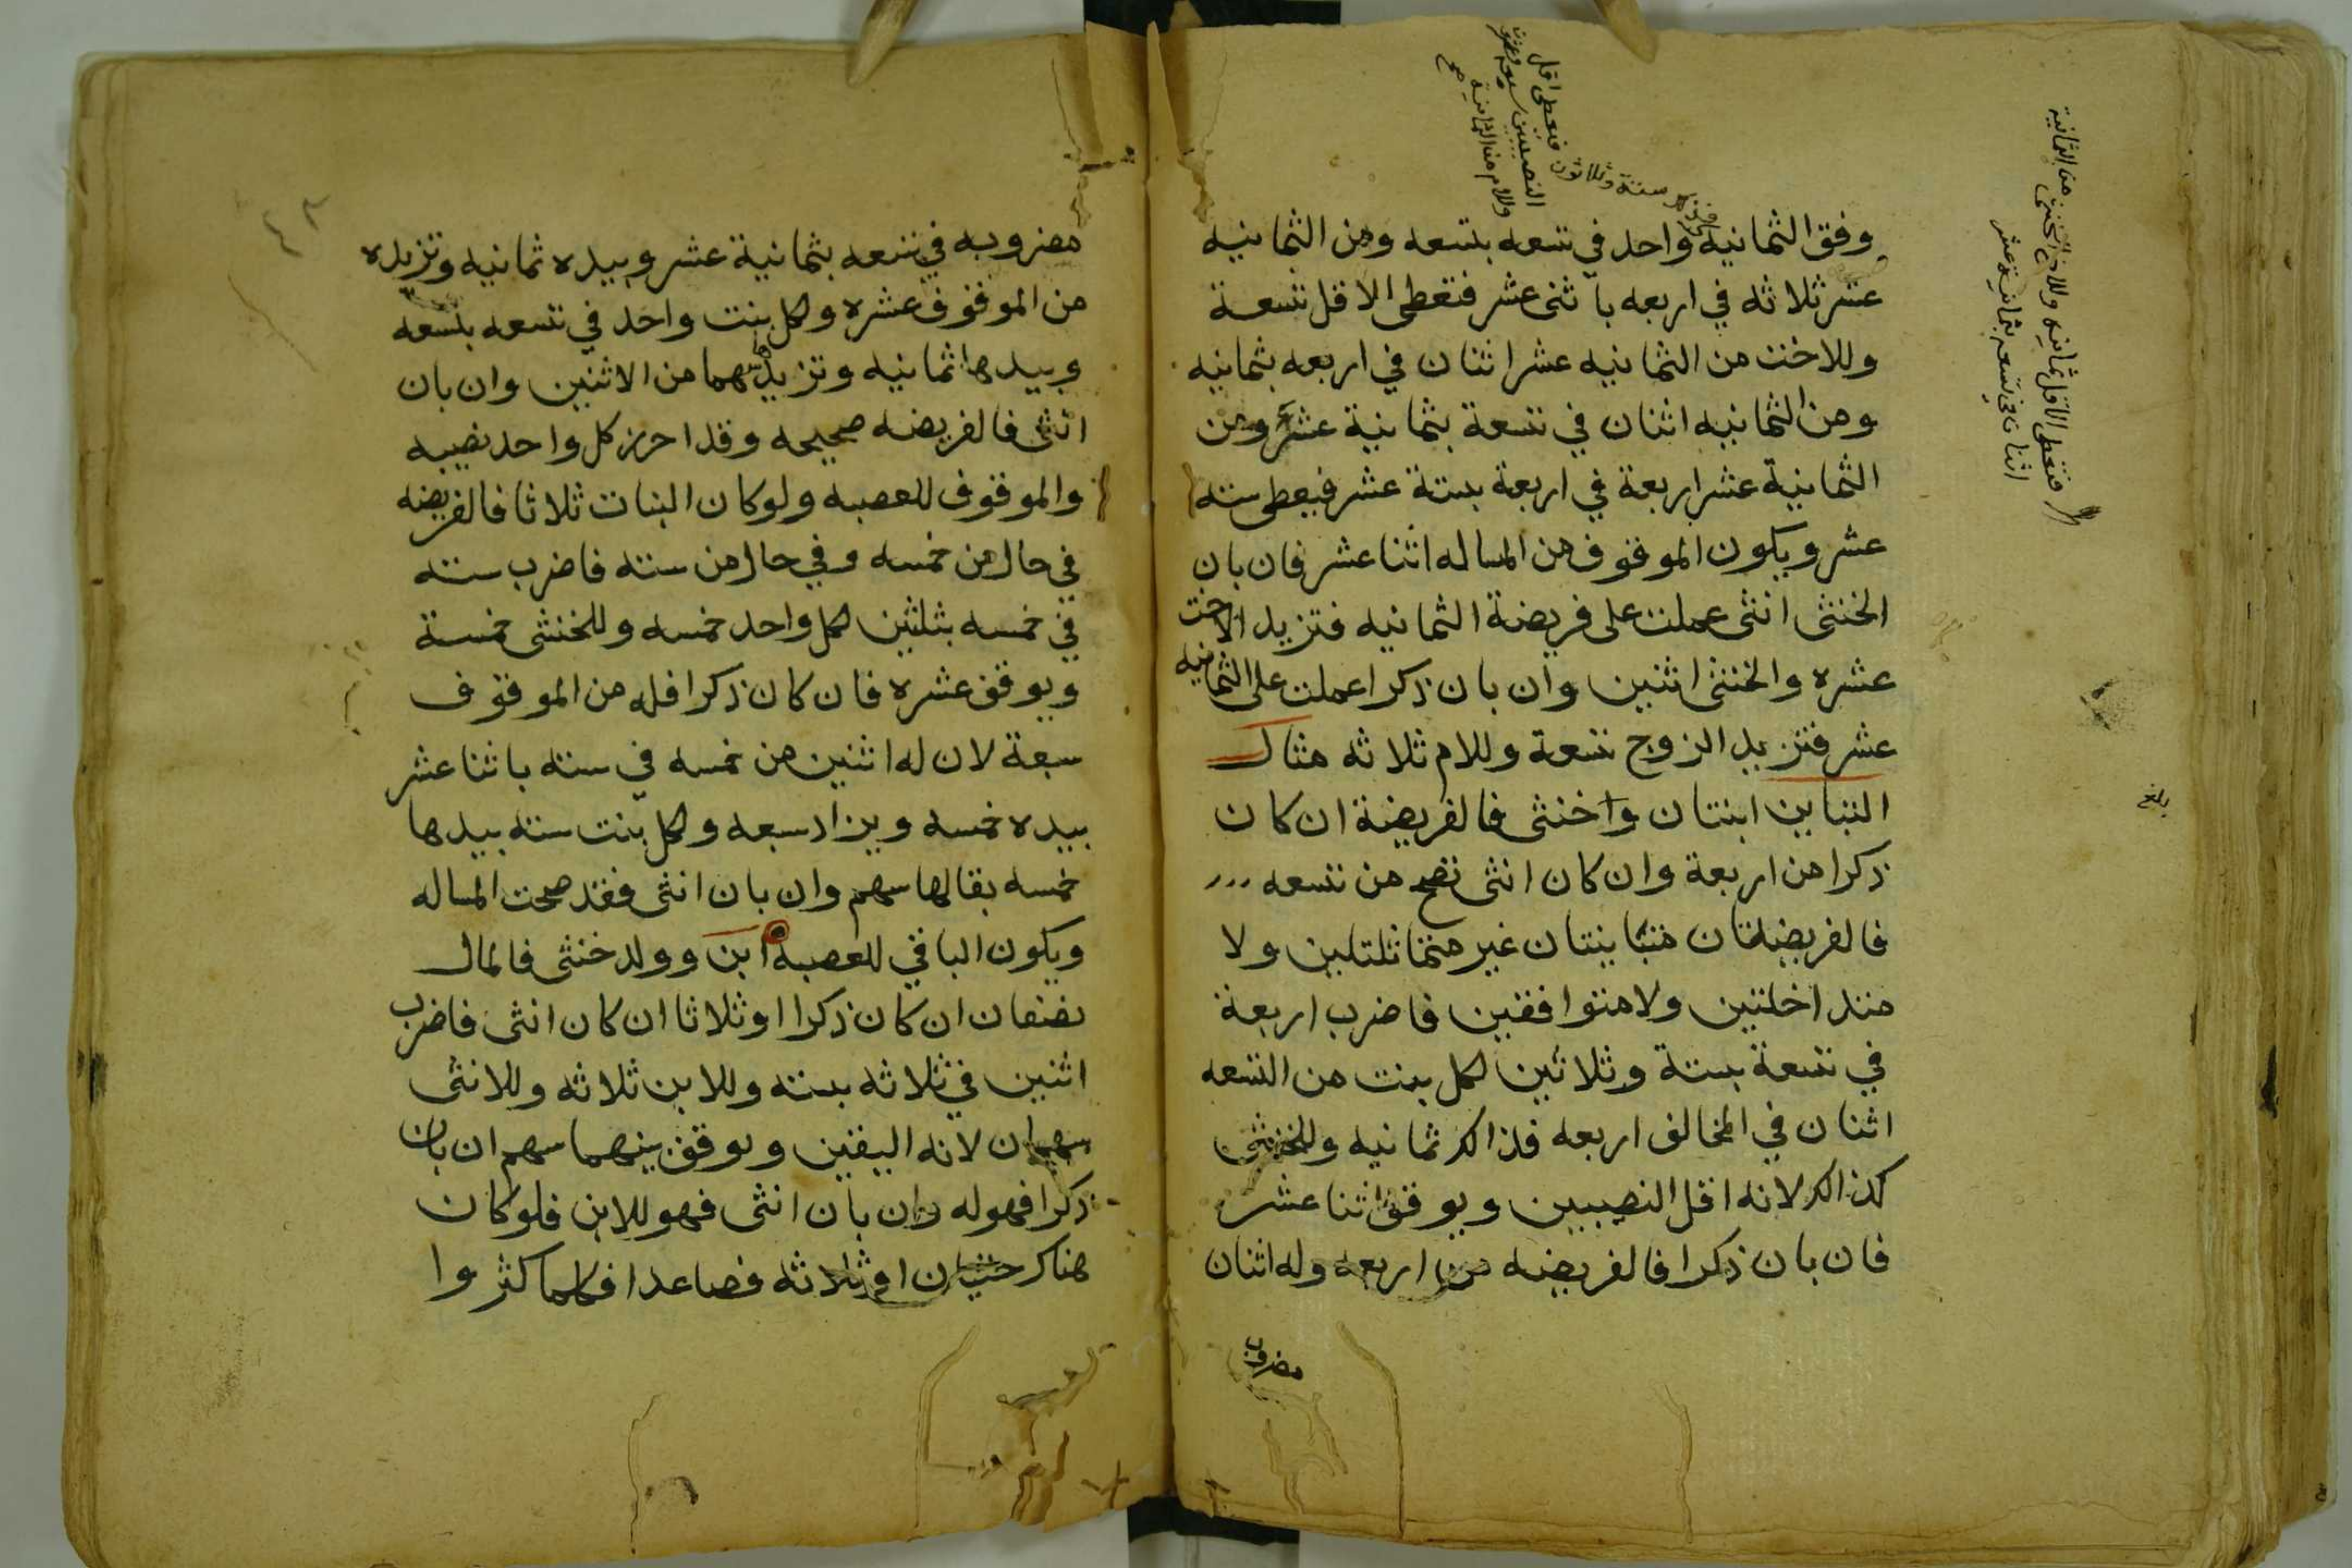 وفق الثمانيه واحد في تسعه بتسعه ومن الثمانيه
عشر ثلاثه في اربعه باثنى عشر فتعطى الاقل تسعة
وللاخت من الثمانيه عشر اثنان في اربعه بثمانيه
ومن الثمانيه اثنان في تسعة بثمانية عشر ومن
الثمانية عشر اربعة في اربعة بستة عشر فيعطى سته
عشر ويكون الموقوف من المساله اثنا عشر فان بان
الخنثى انثى عملت على فريضة الثمانيه فتزيد الاخت
عشره والخنثى اثنين وان بان ذكرا عملت على الثمانيه
عشر فتزيد الزوج تسعة وللام ثلاثه مثال
التباين ابنتان وخنثى فالفريضة ان كان
ذكرا من اربعة وان كان انثى تصح من تسعه
فالفريضتان متباينتان غير متماثلتلين ولا
متداخلتين ولا متوافقين فاضرب اربعة
في تسعة بستة وثلاثين لكل بنت من التسعه
اثنان في المخالف اربعه فذالك ثمانيه وللخنثى
كذالك لانه اقل النصيبين ويوقف اثنا عشر
فان بان ذكرا فالفريضه من اربعه وله اثنان
مضروب
فذلك ستة وثلاثون فتعطى اقل
النصيبين
وللام من الثمانية
صح
من الثمانية
فتعطى الاقل ثمانيه وللاخ الخنثى
اثنان في تسعه بثمانية عشر
بلغ
مضروبه في تسعه بثمانية عشر وبيده ثمانيه وتزيده
من الموقوف عشره ولكل بنت واحد في تسعه بتسعه
وبيدها ثمانيه وتزيد سهما من الاثنين وان بان
انثى فالفريضه صحيحه وقد احرز كل واحد نصيبه
والموقوف للعصبه ولو كان البنات ثلاثا فالفريضه
في حال من خمسه وفي حال من سته فاضرب سته
في خمسه بثلثين لكل واحد خمسه وللخنثى خمسة
ويوقف عشره فان كان ذكرا فله من الموقوف
سبعة لان له اثنين من خمسه في سته باثنا عشر
بيده خمسه ويزاد سبعه ولكل بنت سته بيدها
خمسه بقالها سهم وان بان انثى فقد صحت المساله
ويكون الباقي للعصبه ابن وولد خنثى فالمال
نصفان ان كان ذكرا او ثلاثا ان كان انثى فاضرب
اثنين في ثلاثه بسته وللابن ثلاثه وللانثى
سهمان لانه اليقين ويوقف بينهما سهم ان بان
ذكرا فهو له وان بان انثى فهو للابن فلو كان
هناك خنثيان او ثلاثه فصاعدا فكلما كثروا